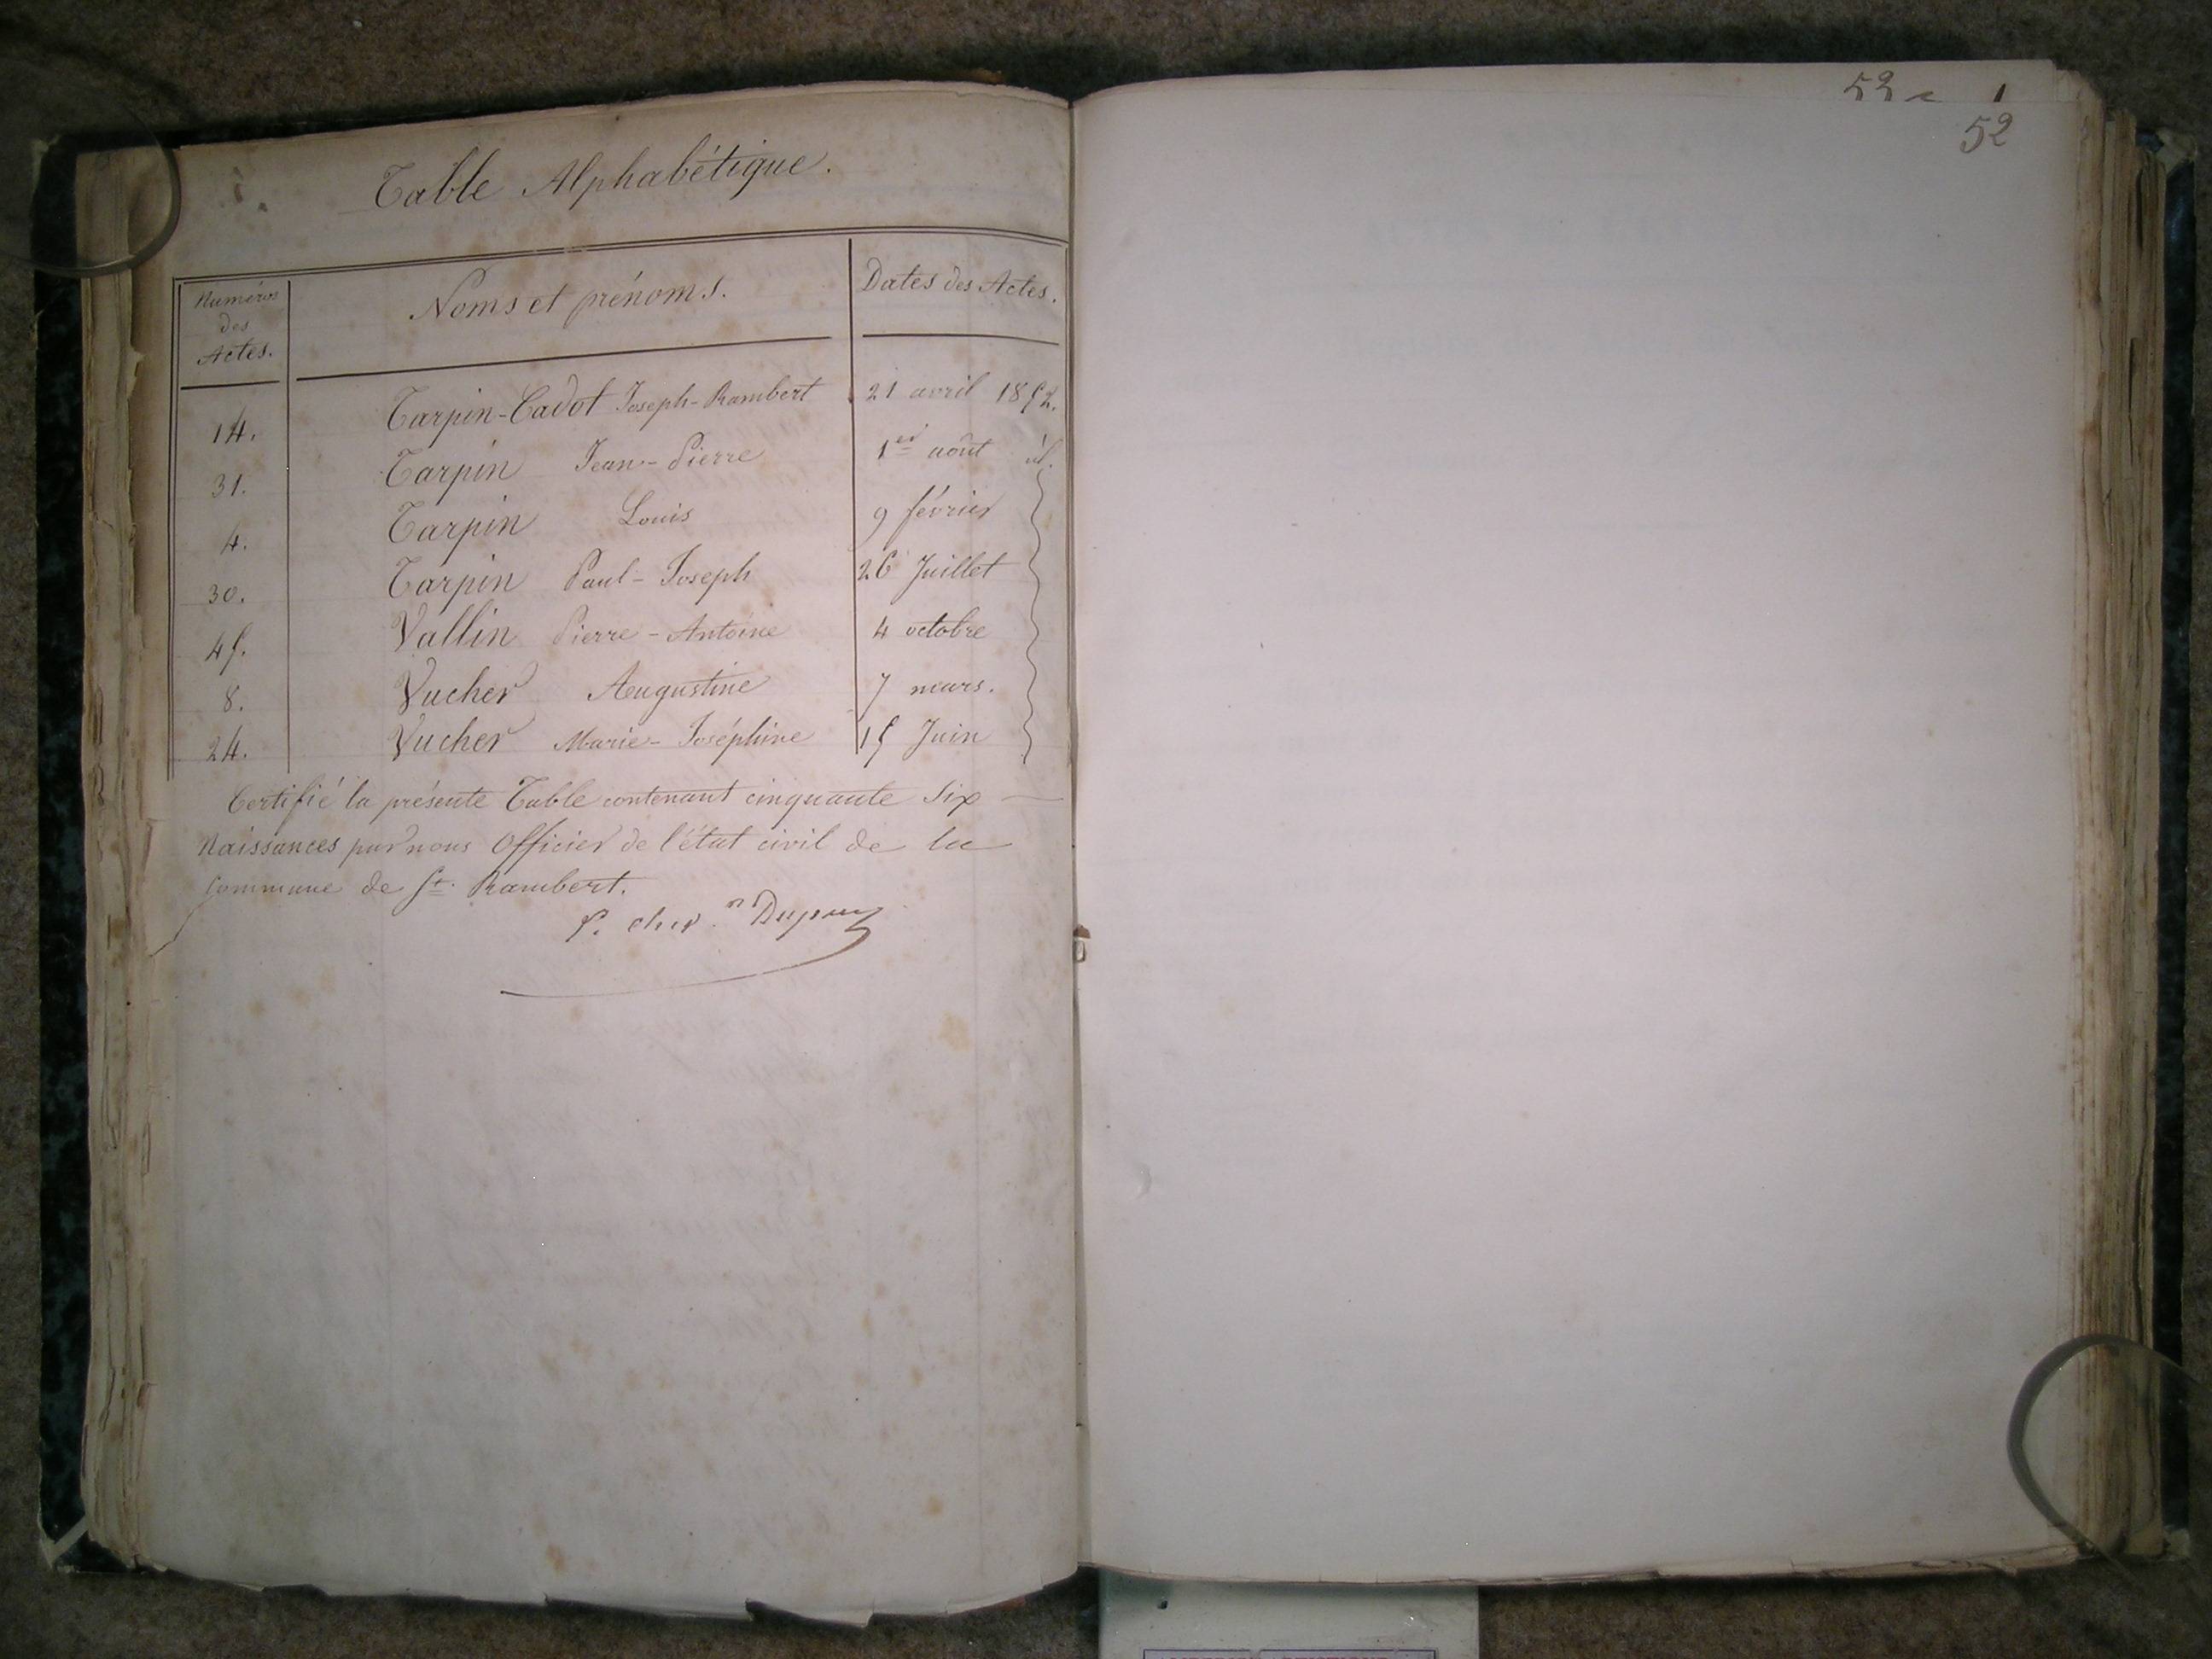 Table Alphabétique.
Numéros des Actes. Noms et prénoms. Dates des Actes.
14. Tarpin-Cadot Joseph-Rambert 21 avril 1852.
31. Tarpin Jean-Pierre 1er août id.
4. Tarpin Louis 9 février
30. Tarpin Paul-Joseph 26 Juillet
45. Vallin Pierre-Antoine 4 octobre
8. Vucher Augustine 7 mars.
24. Vucher Marie-Joséphine 15 Juin
Certifié la présente Table contenant cinquante Six
Naissances par nous Officier de l'état civil de la
Commune de St. Rambert.
Dupuy
52 1
52